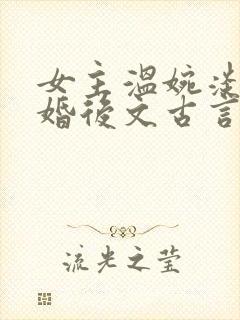 女主温婉淡
婚後文古言
流光之莹